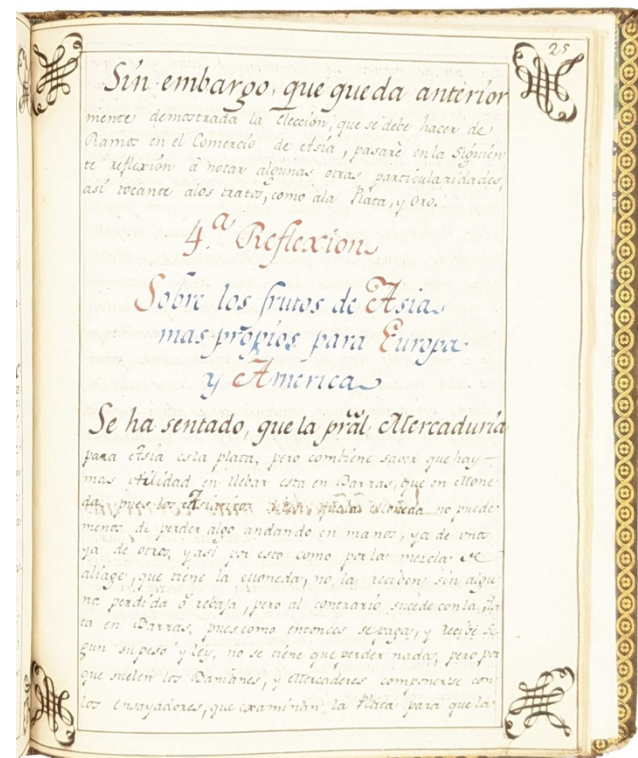 25
Sin embargo, que queda anterior
mente demostrada la eleccion, que se debe hacer de
Ramos en el Comercio de Asia, pasarè en la Siguien
te reflexión à notar algunas otras particularidades,
asi tocante alos tratos, como ala Plata, y Oro.
4.ª Reflexion
Sobre los frutos de Asia
mas propios para Europa
y America
Se ha sentado, que la prál Mercaduría
para Asia esla plata, pero combiene saver que hay
mas utilidad en llebar esta en Barras, que en Mone
da, pues los Asiaticos la Moneda no puede
menos de perder algo andando en manos, ya de unos
ya de otros, y asi por esto como por la mezcla de
aliage, que tiene la Moneda, no la reciben sin algu
na perdida ò rebaja, pero al contrario sucede con la Pla
ta en Barras, pues como entonces se paga, y recibe Se
gun su peso y ley, no se tiene que perder nada, pero por
que suelen los Banianes, y Mercaderes componerse con
los ensayadores, que examinan la Plata para que la